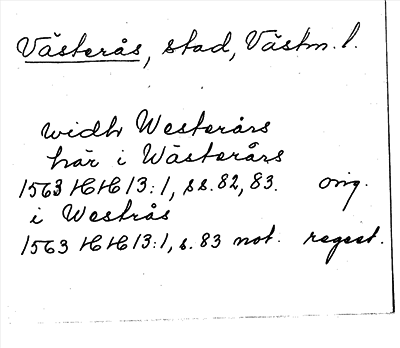 Västerås, stad, Västm. l.
widh Westerårs
här i Wästerårs
1563 HH 13:1, ss. 82, 83. orig.
i Westrås
1563 HH 13:1, s. 83 not. regest.